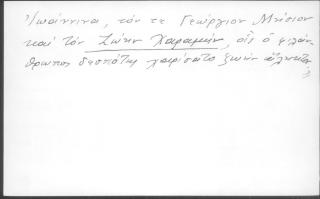 Ἰωάννινα, τόν τε Γεώργιον Μήσιον
καὶ τὸν Ζώην Χαραμήν, οἷς ὁ φιλάν-
θρωπος δεσπότης χαρίσαιτο ζωὴν ἄληκτον